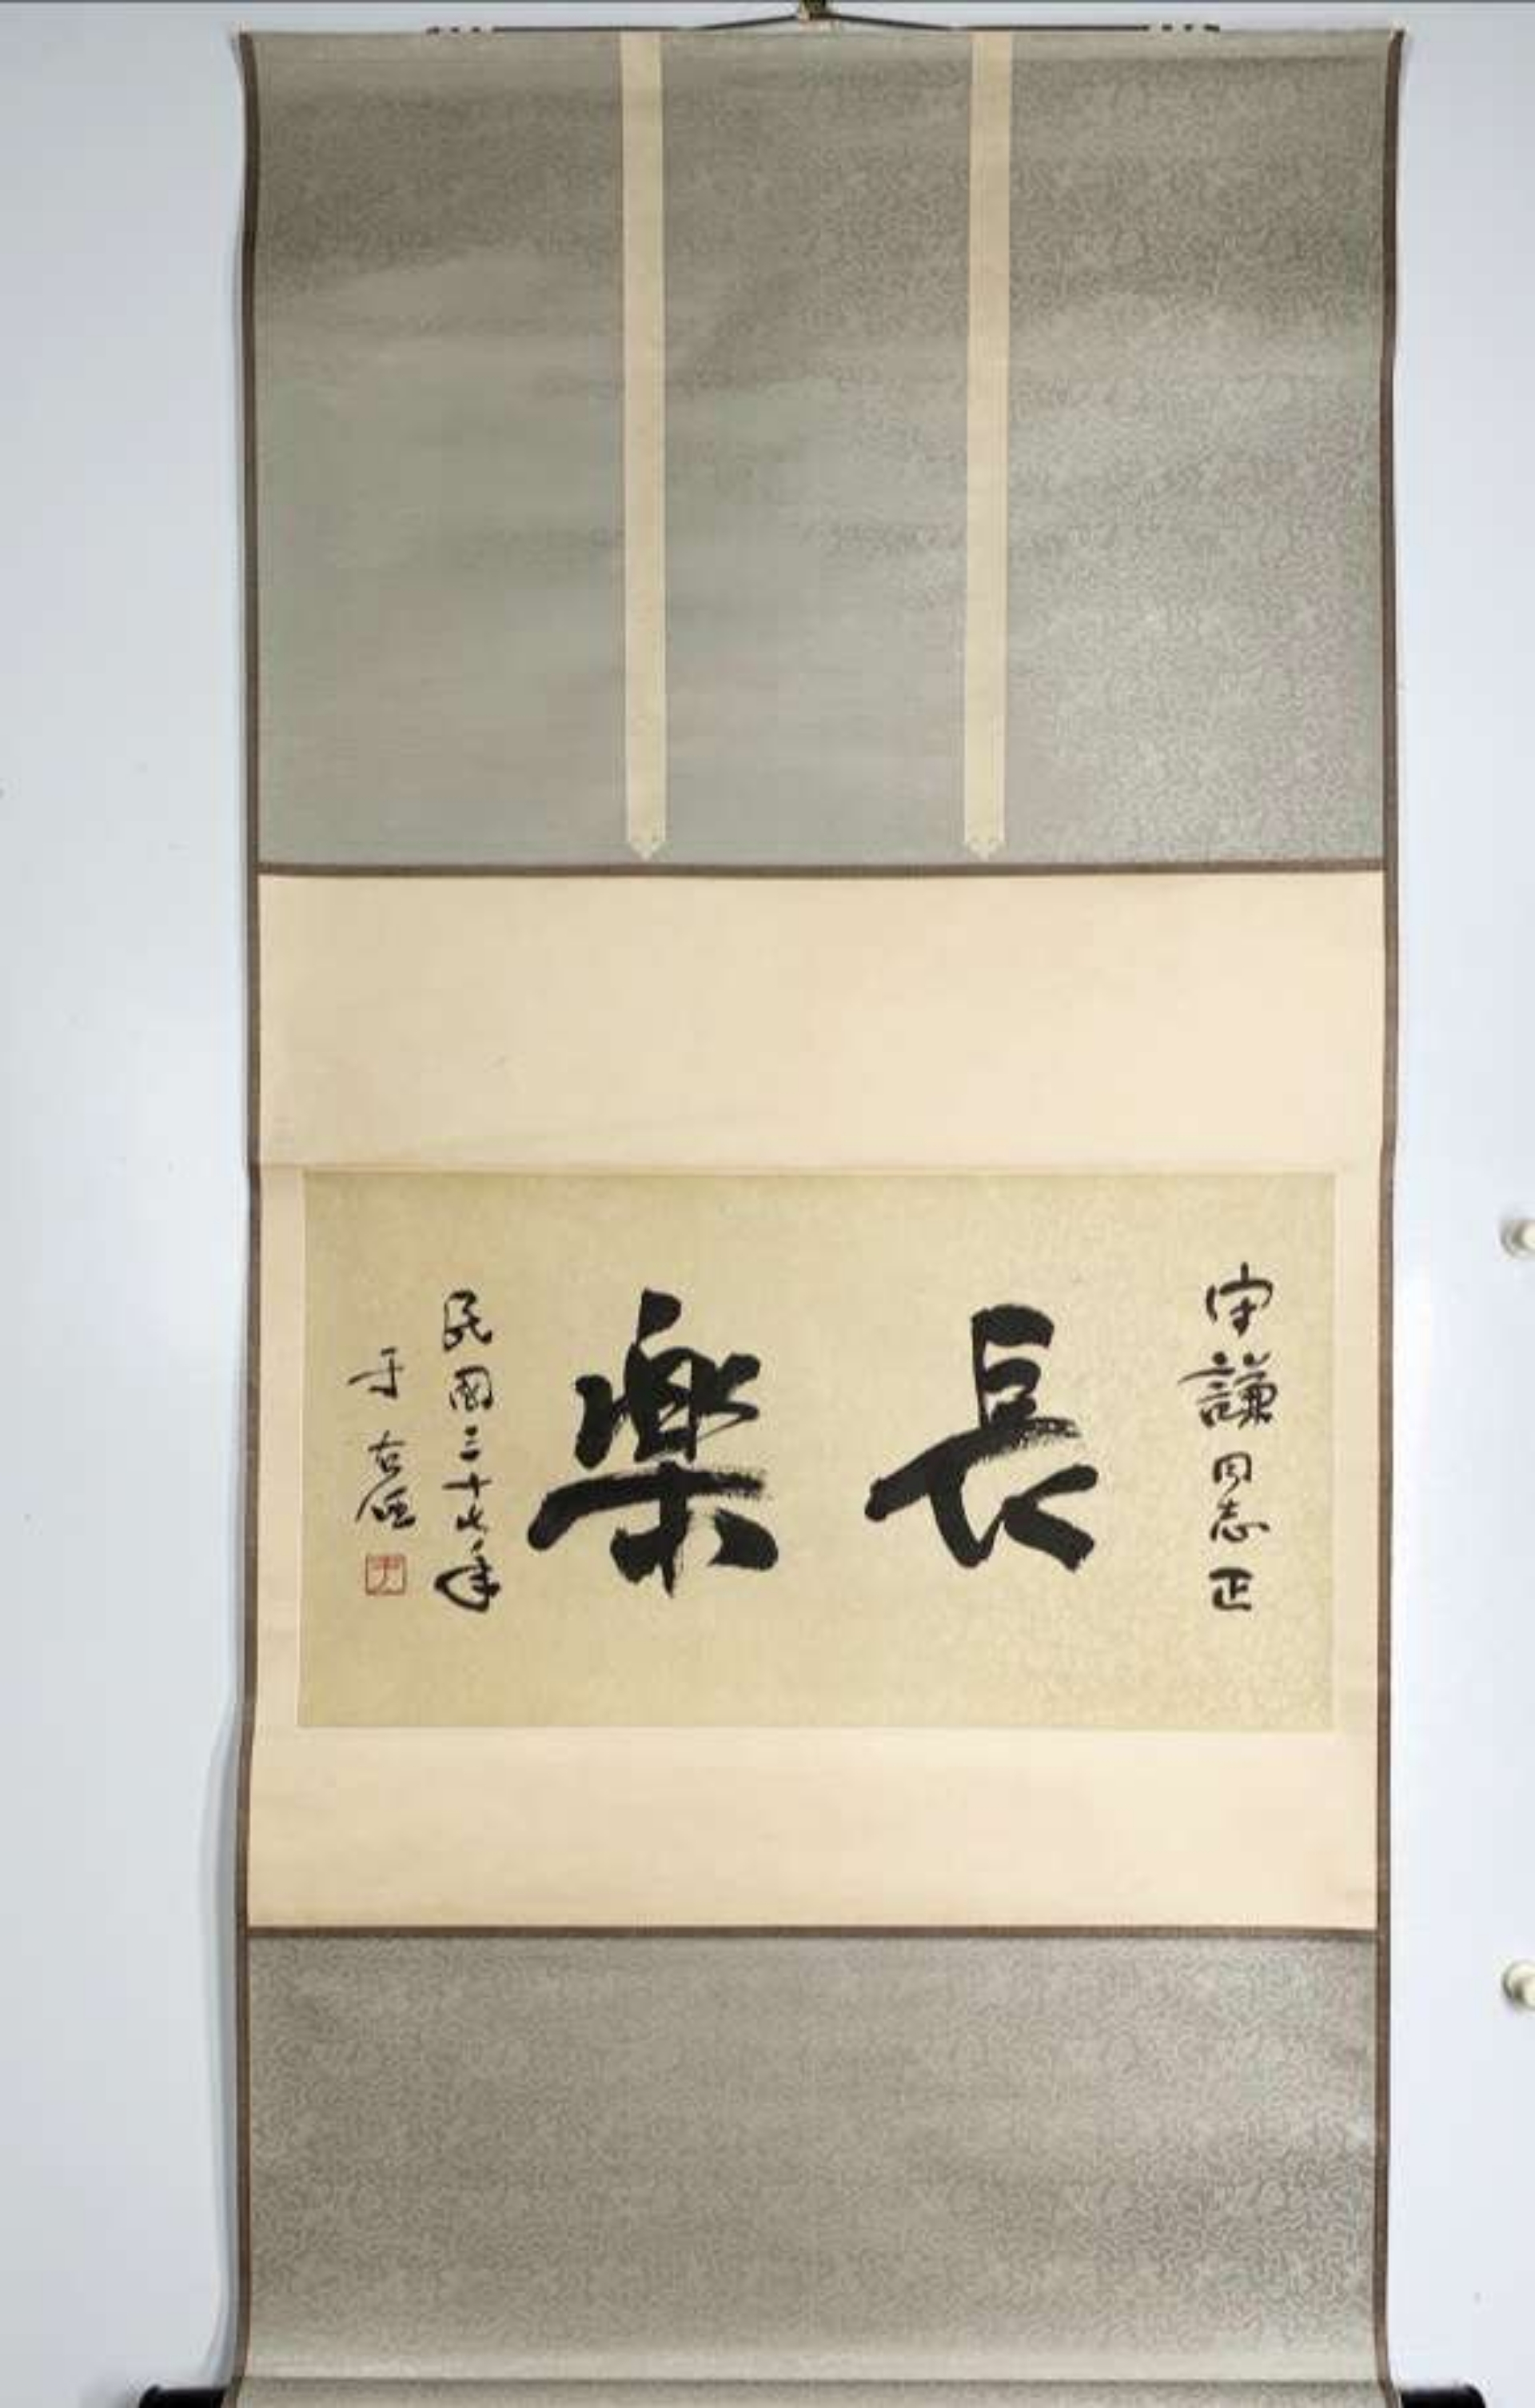 守謙同志正
長樂
民國三十七年
于右任